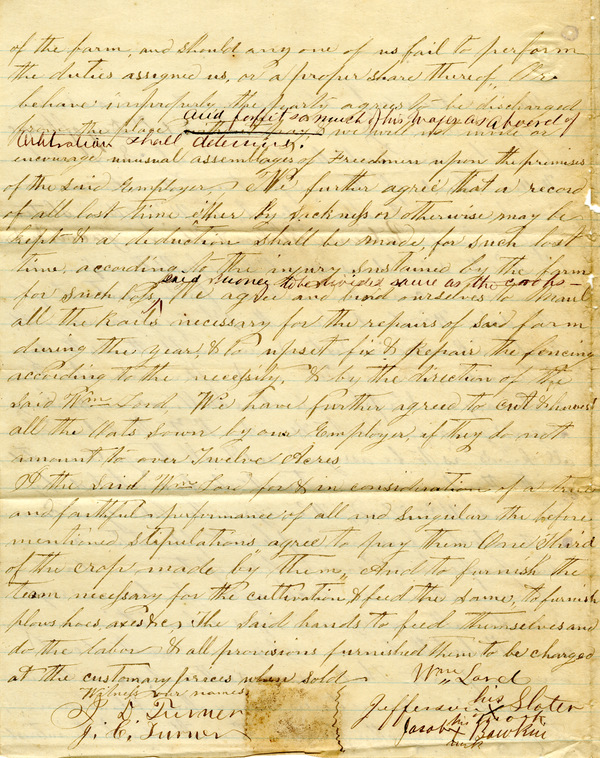 of the farm, and should any one of us fail to perform
the duties assigned us, or a proper share thereof, Or
behave improperly the party agrees to be discharged
and forfeit so much of his wages as a board of
from the place without pay & we will not invite or
Arbitration shall determine.
encourage unusual assemblages of Freedmen upon the premises
of the said Employer, We further agree that a record
of all lost time either by sickness or otherwise may be
kept & a deduction shall be made, for such lost
time, according to the injury sustained by the farm
said money to be divided same as the crops—
for such loss, We agree and bind ourselves to maul
all the Rails necessary for the repairs of said farm
during the year, & to upset fix & repair the fencing
according to the necessity, & by the direction of the
said Wm Lord We have further agreed to cut & harvest
all the Oats sown by our Employer, if they do not
amount to over Twelve Acres,
I the said Wm Lord for & in consideration of a true
and faithful performance of all and singular the before
mentioned stipulations agree to pay them One Third
of the crop made by them, And to furnish the
team necessary for the cultivation & feed the same, to furnish
plows hoes axes &c, The said hands to feed themselves and
do the labor & all provisions furnished them to be charged
at the customary prices when sold
Wm Lord
Witness our names
J. D. Turner
J. C. Turner
Jefferson his X Slater
mark
Jacob his X Hawkin
mark